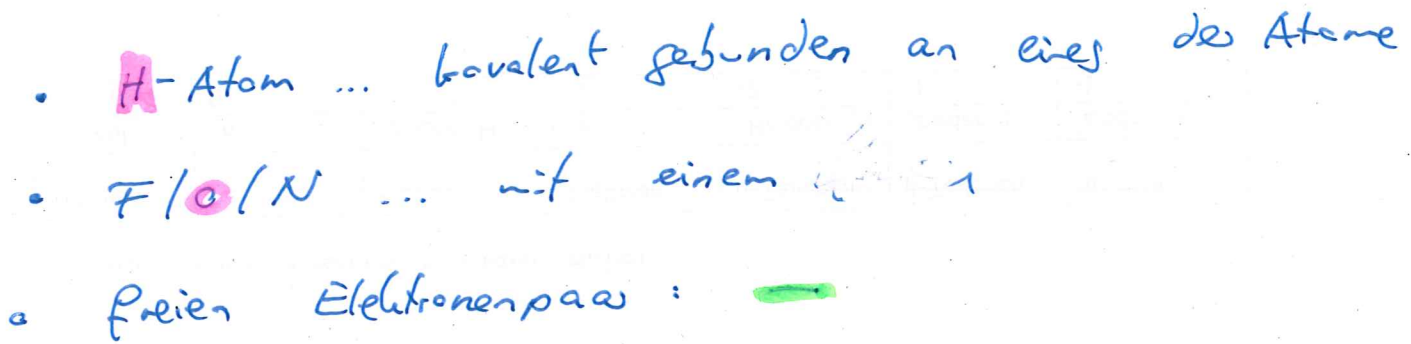 • H-Atom ... kovalent gebunden an eines der Atome
• F/O/N ... mit einem
• freien Elektronenpaar : —